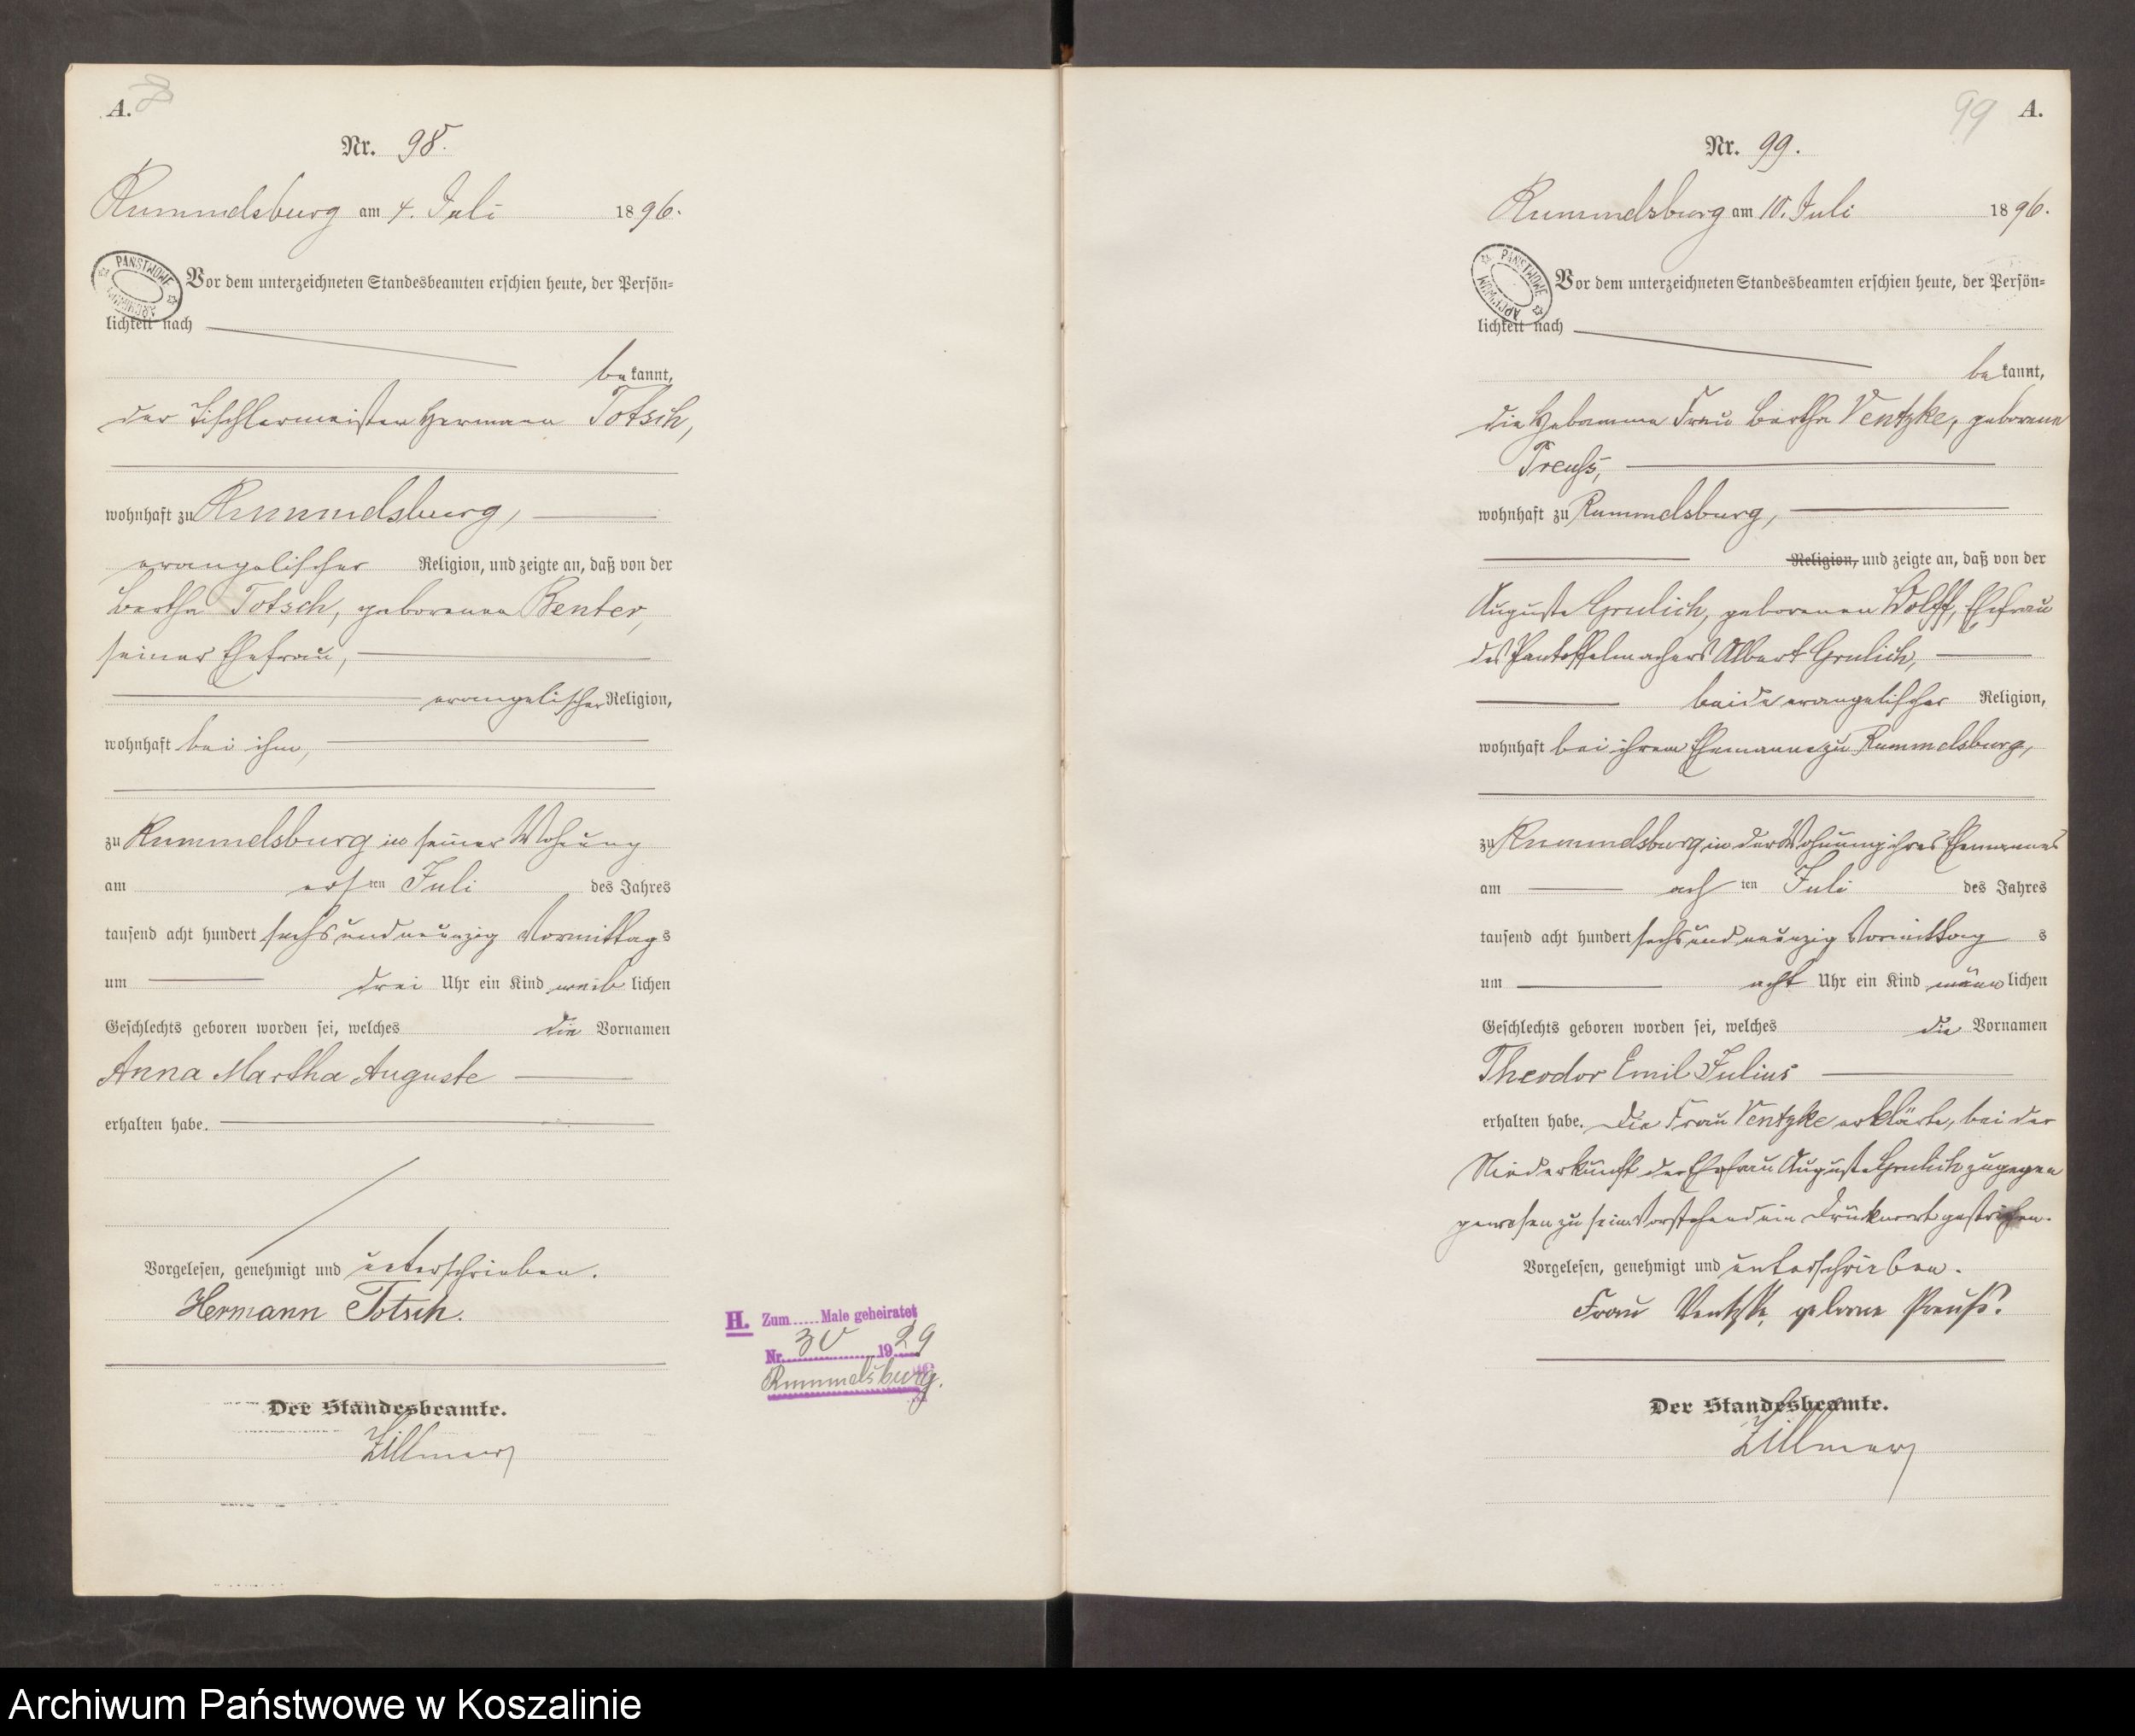 A.
Nr. 98.
Rummelsburg am 4. Juli 1896.
PAŃSTWOWE ARCHIWUM
Vor dem unterzeichneten Standesbeamten erschien heute, der Persön=
lichkeit nach
bekannt,
der Tischlermeister Hermann Totsch,
wohnhaft zu Rummelsburg,
evangelischer Religion, und zeigte an, daß von der
Bertha Totsch, geborenen Benter,
seiner Ehefrau,
evangelischer Religion,
wohnhaft bei ihm,
zu Rummelsburg in seiner Wohnung
am ersten Juli des Jahres
tausend acht hundert sechs und neunzig Vormittags
um drei Uhr ein Kind weiblichen
Geschlechts geboren worden sei, welches die Vornamen
Anna Martha Auguste
erhalten habe.
Vorgelesen, genehmigt und unterschrieben.
Hermann Totsch.
Der Standesbeamte.
Zillmer
H. Zum ..... Male geheiratet
Nr. 30 1929
Rummelsburg.
99 A.
Nr. 99.
Rummelsburg am 10. Juli 1896.
PAŃSTWOWE ARCHIWUM
Vor dem unterzeichneten Standesbeamten erschien heute, der Persön=
lichkeit nach
bekannt,
die Hebamme Frau Bertha Ventzke, geborene
Preuß,
wohnhaft zu Rummelsburg,
Religion, und zeigte an, daß von der
Auguste Grulich, geborenen Wolff, Ehefrau
des Pantoffelmachers Albert Grulich,
beide evangelischer Religion,
wohnhaft bei ihrem Ehemanne zu Rummelsburg,
zu Rummelsburg in der Wohnung ihres Ehemannes
am achten Juli des Jahres
tausend acht hundert sechs und neunzig Vormittags
um acht Uhr ein Kind männlichen
Geschlechts geboren worden sei, welches die Vornamen
Theodor Emil Julius
erhalten habe. Die Frau Ventzke erklärte, bei der
Niederkunft der Ehefrau Auguste Grulich zugegen
gewesen zu sein. Vorstehend ein Druckwort gestrichen.
Vorgelesen, genehmigt und unterschrieben.
Frau Ventzke, geborne Preuß.
Der Standesbeamte.
Zillmer
Archiwum Państwowe w Koszalinie